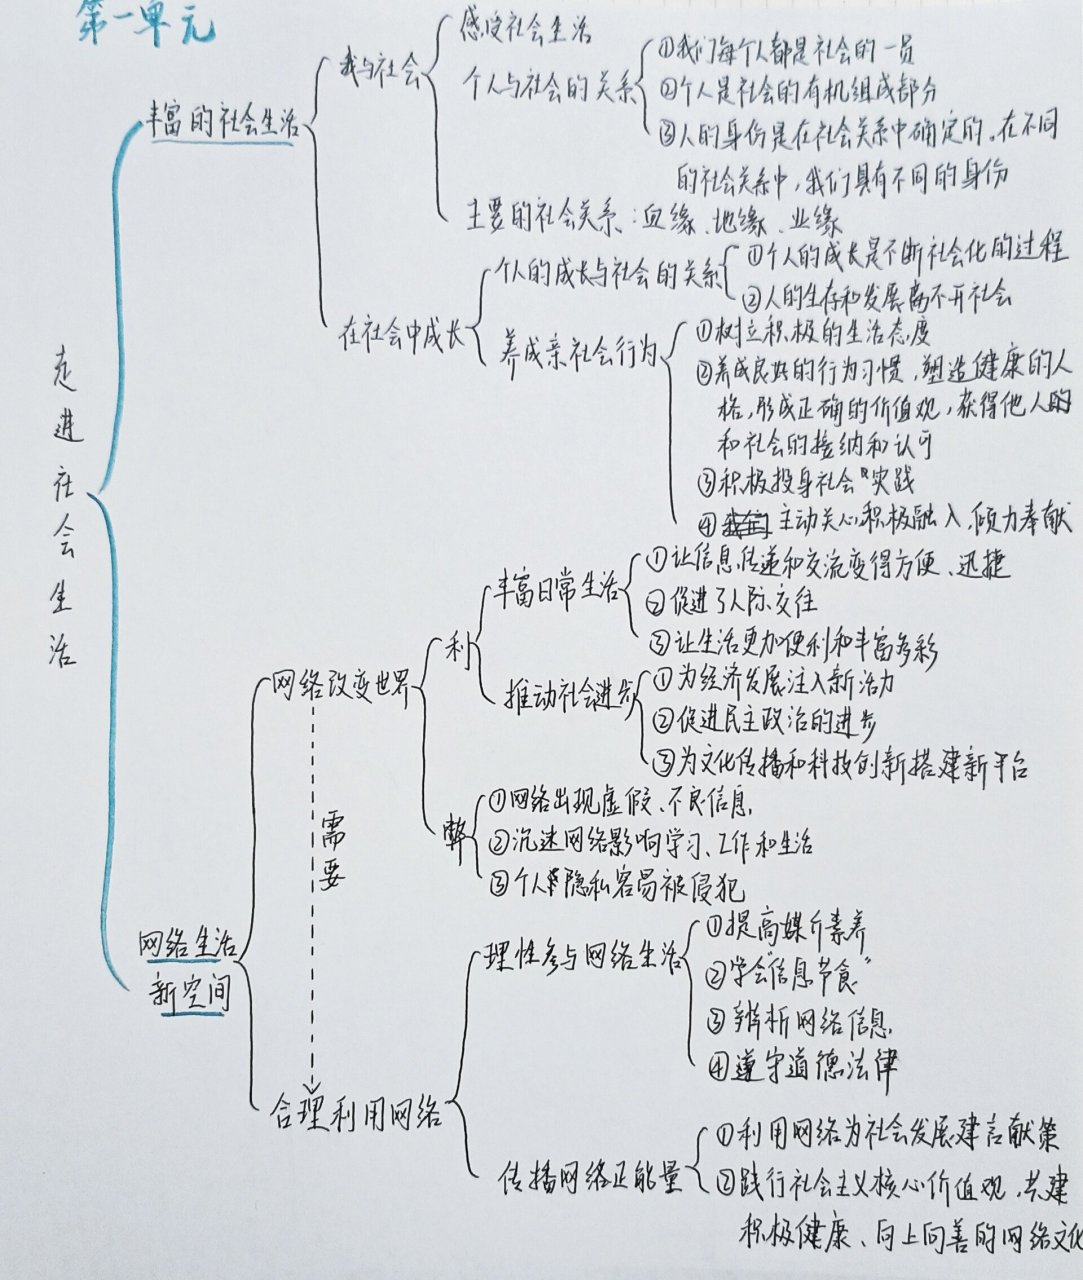 第一单元
走进社会生活
丰富的社会生活
我与社会
感受社会生活
个人与社会的关系
①我们每个人都是社会的一员
②个人是社会的有机组成部分
③人的身份是在社会关系中确定的。在不同
的社会关系中，我们具有不同的身份
主要的社会关系：血缘、地缘、业缘
在社会中成长
个人的成长与社会的关系
①个人的成长是不断社会化的过程
②人的生存和发展离不开社会
养成亲社会行为
①树立积极的生活态度
②养成良好的行为习惯，塑造健康的人
格，形成正确的价值观，获得他人的
和社会的接纳和认可
③积极投身社会实践
④主动关心积极融入，倾力奉献
网络生活
新空间
网络改变世界
利
丰富日常生活
①让信息传递和交流变得方便、迅捷
②促进了人际交往
③让生活更加便利和丰富多彩
推动社会进步
①为经济发展注入新活力
②促进民主政治的进步
③为文化传播和科技创新搭建新平台
弊
①网络出现虚假、不良信息
②沉迷网络影响学习、工作和生活
③个人隐私容易被侵犯
需要
合理利用网络
理性参与网络生活
①提高媒介素养
②学会“信息节食”
③辨析网络信息
④遵守道德法律
传播网络正能量
①利用网络为社会发展建言献策
②践行社会主义核心价值观，共建
积极健康、向上向善的网络文化